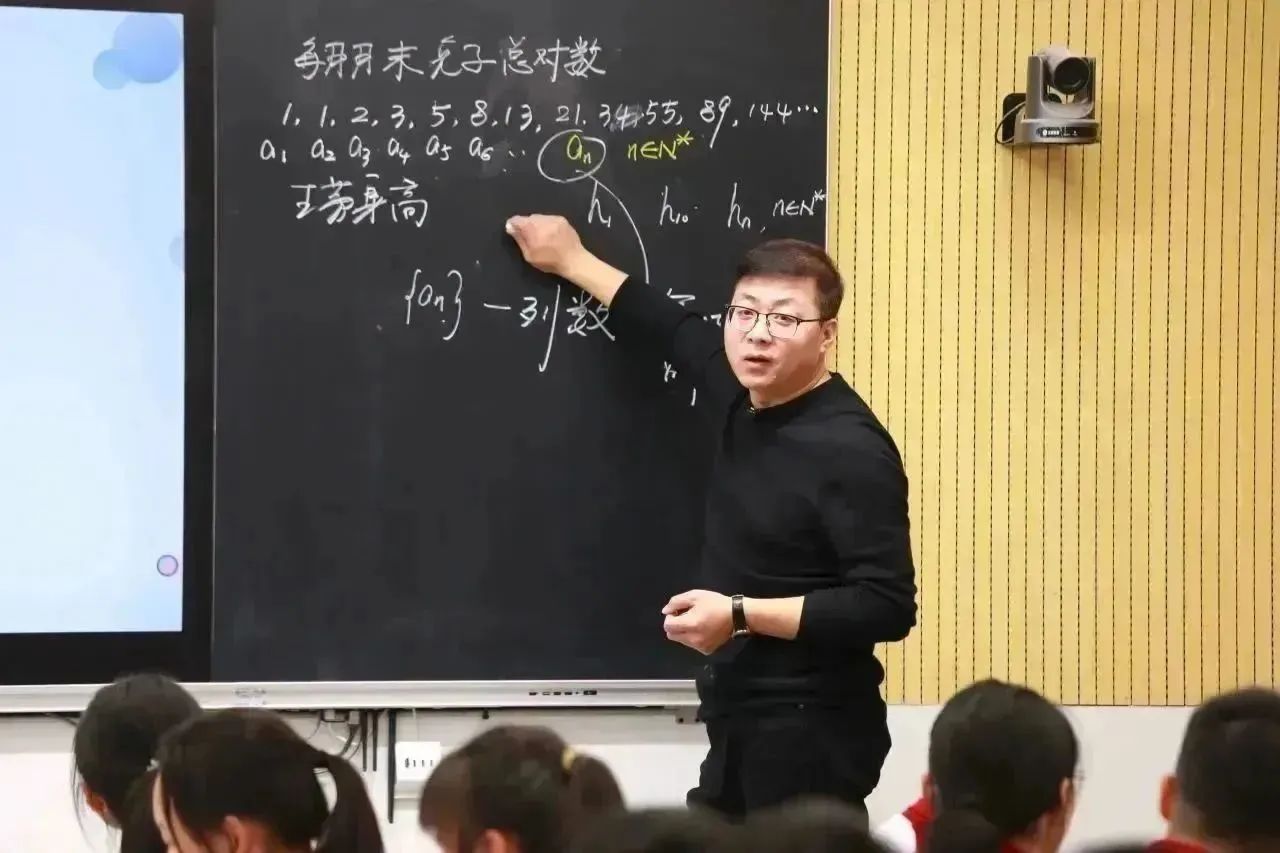 每月月末兔子总对数
1, 1, 2, 3, 5, 8, 13, 21, 34, 55, 89, 144…
a₁ a₂ a₃ a₄ a₅ a₆ … aₙ n∈N*
王芳身高 h₁ h₁₀ hₙ, n∈N*
{aₙ} 一列数